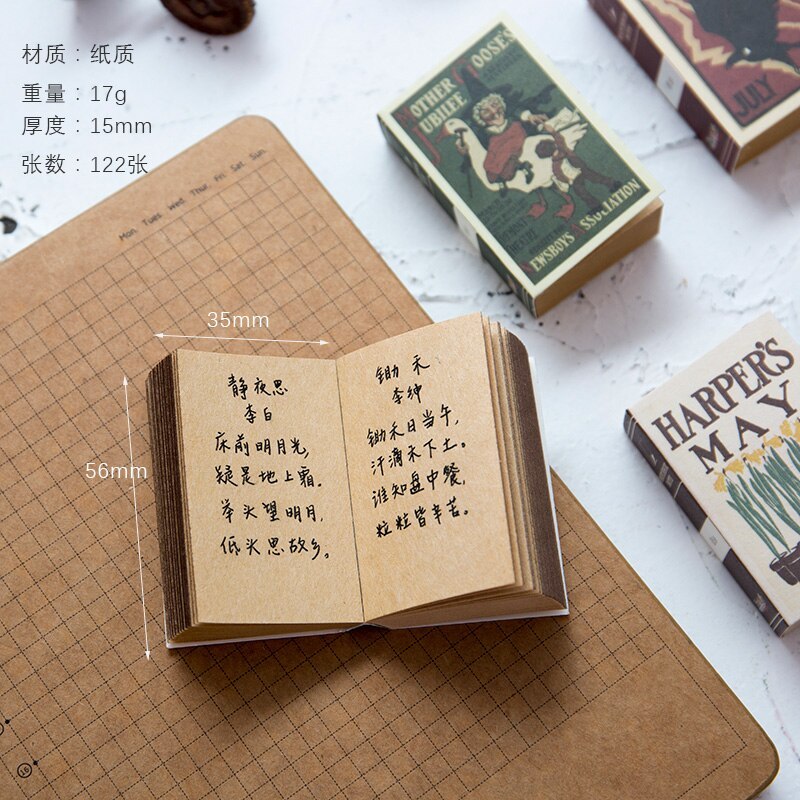 材质：纸质
重量：17g
厚度：15mm
张数：122张
Mon Tues Wed Thur Fri Sat Sun
35mm
56mm
静夜思
李白
床前明月光,
疑是地上霜.
举头望明月,
低头思故乡。
锄禾
李绅
锄禾日当午,
汗滴禾下土。
谁知盘中餐,
粒粒皆辛苦。
MOTHER GOOSE'S
JUBILEE
NEWSBOYS ASSOCIATION
JULY
HARPER'S
MAY